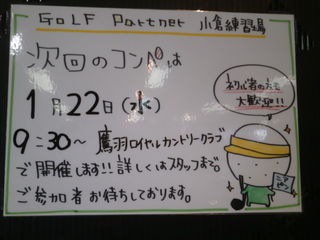 GOLF Partner 小倉練習場
次回のコンペは
1月22日(水)
9:30〜 鷹羽ロイヤルカントリークラブ
で開催します!! 詳しくはスタッフまで。
ご参加者お待ちしております。
初心者の方も
大歓迎!!